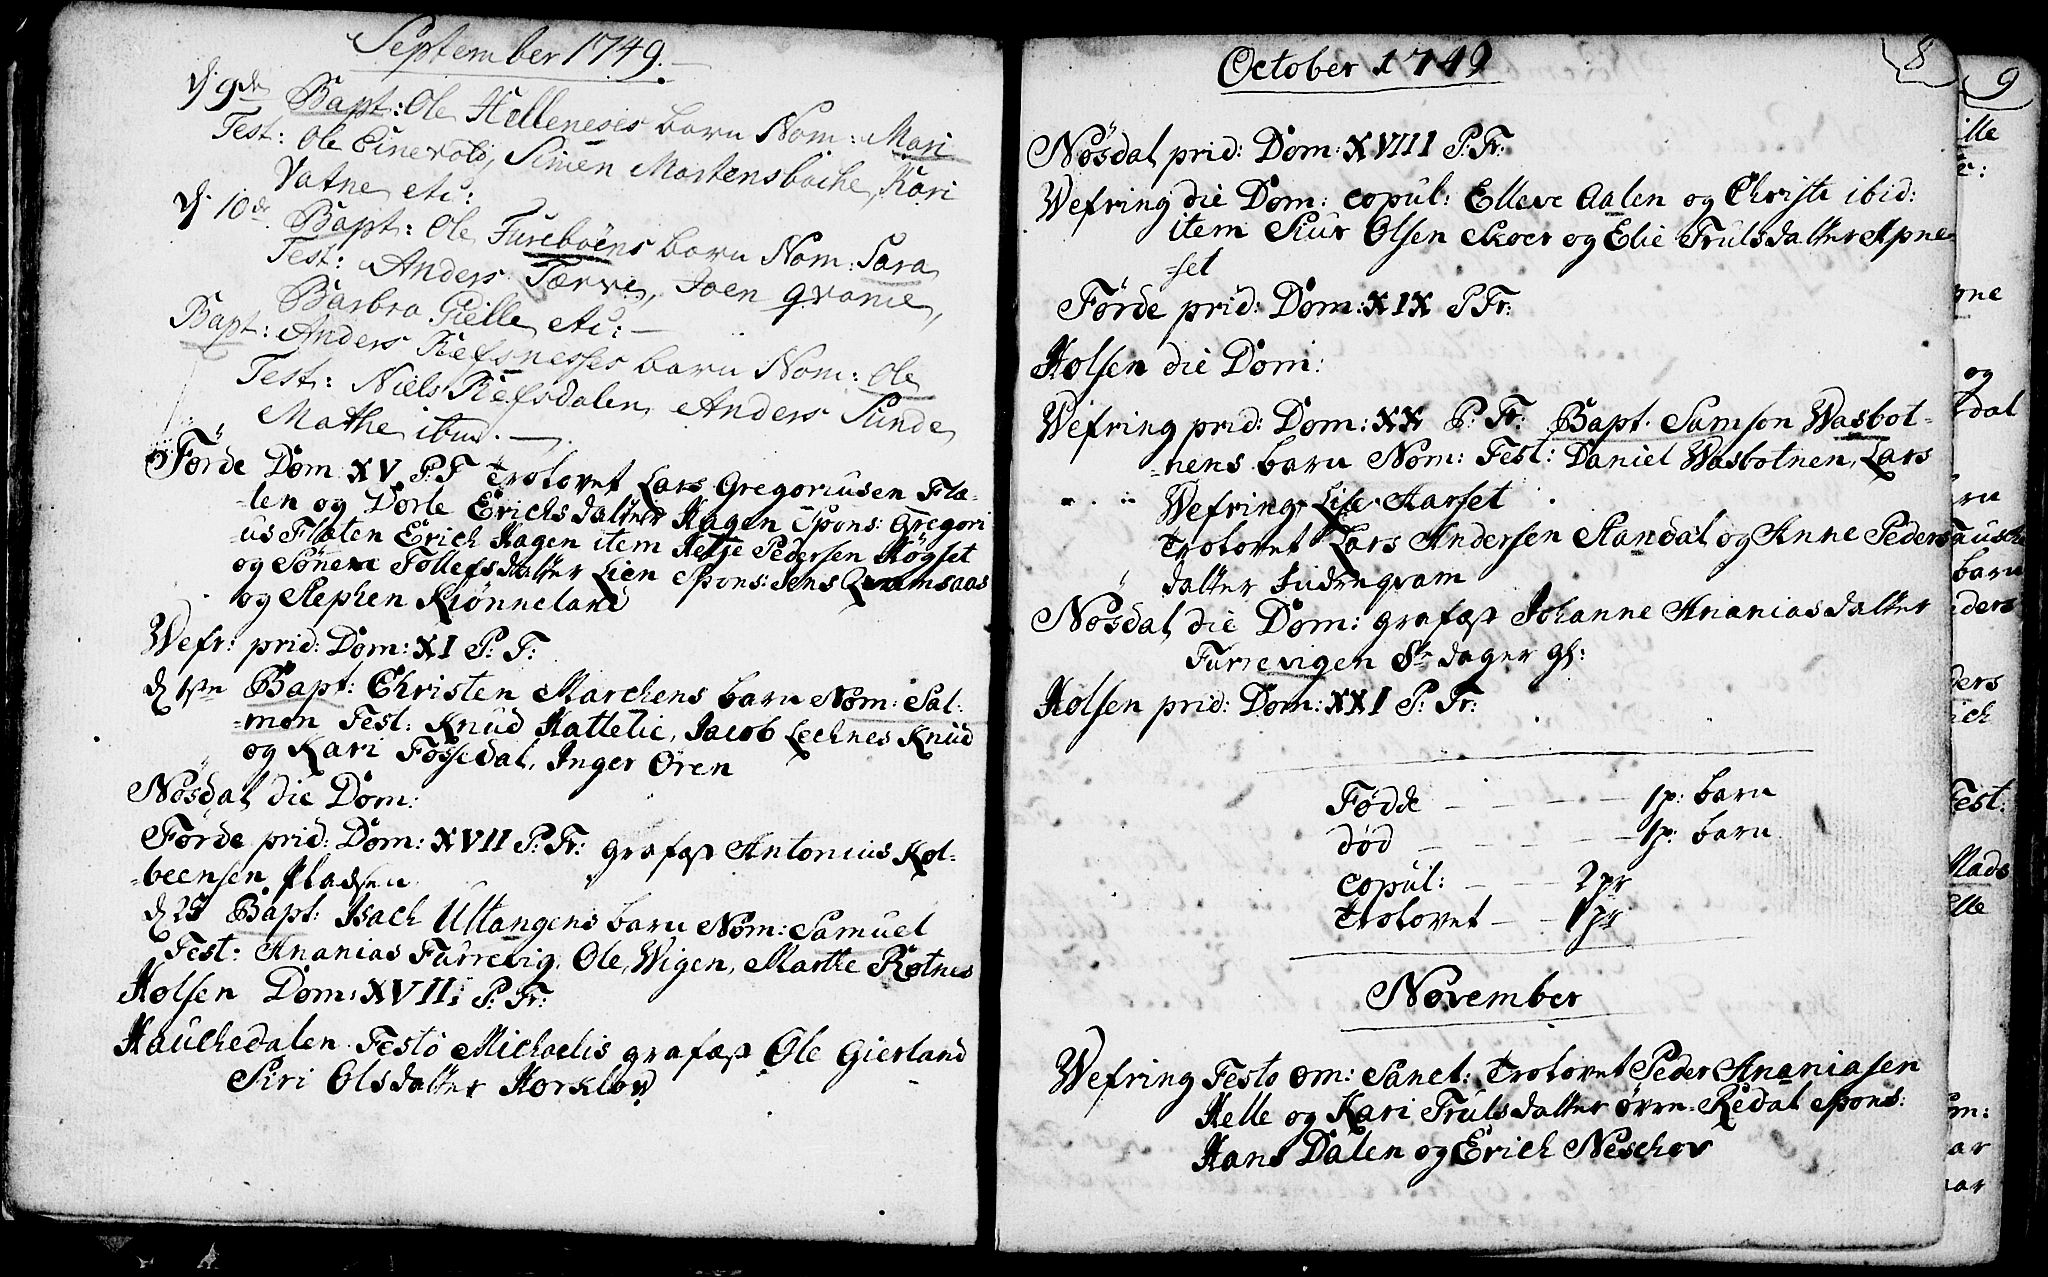 September 1749.
d. 9de Bapt: Ole Helleneses barn Nom: Mari
Test: Ole Einevold, Simen Mortensbache, Kari
Vatne etc:
d. 10de Bapt: Ole Fureboens barn Nom: Sara
Test: Anders Tærre, Joen qvame,
Barbra Gielle etc: —
Bapt: Anders Refsnesses barn Nom: Ole
Test: Niels Refsdalen, Anders Sunde
Mathe ibid. —
Förde Dom XV P.T Trolovet Lars Gregoriusen Flæ-
-len og Dorte Erichsdatter Hagen Spons: Gregori
-us Flæten Erich Hagen item Helje Pedersen Högset
og Sönera Tollefsdatter Lien Spons: Jens Qvamsaas
og Stephen Krönneland
Wefr: prid: Dom: XI P: T:
d 15n Bapt: Christen Marchens barn Nom: Sal-
-mon Test: Knud Hattelie, Jacob Lechnes Knud
og Kari Fossedal, Inger Ören
Nösdal die Dom:
Förde prid: Dom: XVII P: Tr: grafæst Antonius Kol-
-beensen Hladsen
d 25 Bapt: Isach Ultangens barn Nom: Samuel
Test: Ananias Furrevig, Ole Wigen, Marthe Rotnes
Holsen Dom: XVII: P: Tr:
Hauchedalen Festo Michaelis grafæst Ole Gierland
Siri Olsdatter Horklov
October 1749
8
Nösdal prid: Dom: XVIII P: Tr:
Wefring die Dom: copul: Elleve Aalen og Christi ibid:
item Siur Olsen Skoer og Elie Trulsdatter Apne-
-set
Förde prid: Dom: XIX P Tr:
Holsen die Dom:
Wefring prid: Dom: XX P: Tr: Bapt. Samson Wasbot-
-nens barn Nom: Test: Daniel Wasbotnen, Lars
Wefring, Lisa Aarset
Trolovet Lars Andersen Standal og Anne Peders
datter Indreqvam
Nösdal die Dom: grafæst Johanne Ananiasdatter
Furrevigen 8te dager gl:
Holsen prid: Dom: XXI P: Tr:
Födde — — — — 1 p: barn
död — — — — 1 p: barn
copul: — — — 2 pr
Trolovet — — 1 pr
November
Wefring Festo om: Sanct: Trolovet Peder Ananiasen
Helle og Kari Trulsdatter övre Redal Spons:
Hans Dalen og Erich Neschov
9